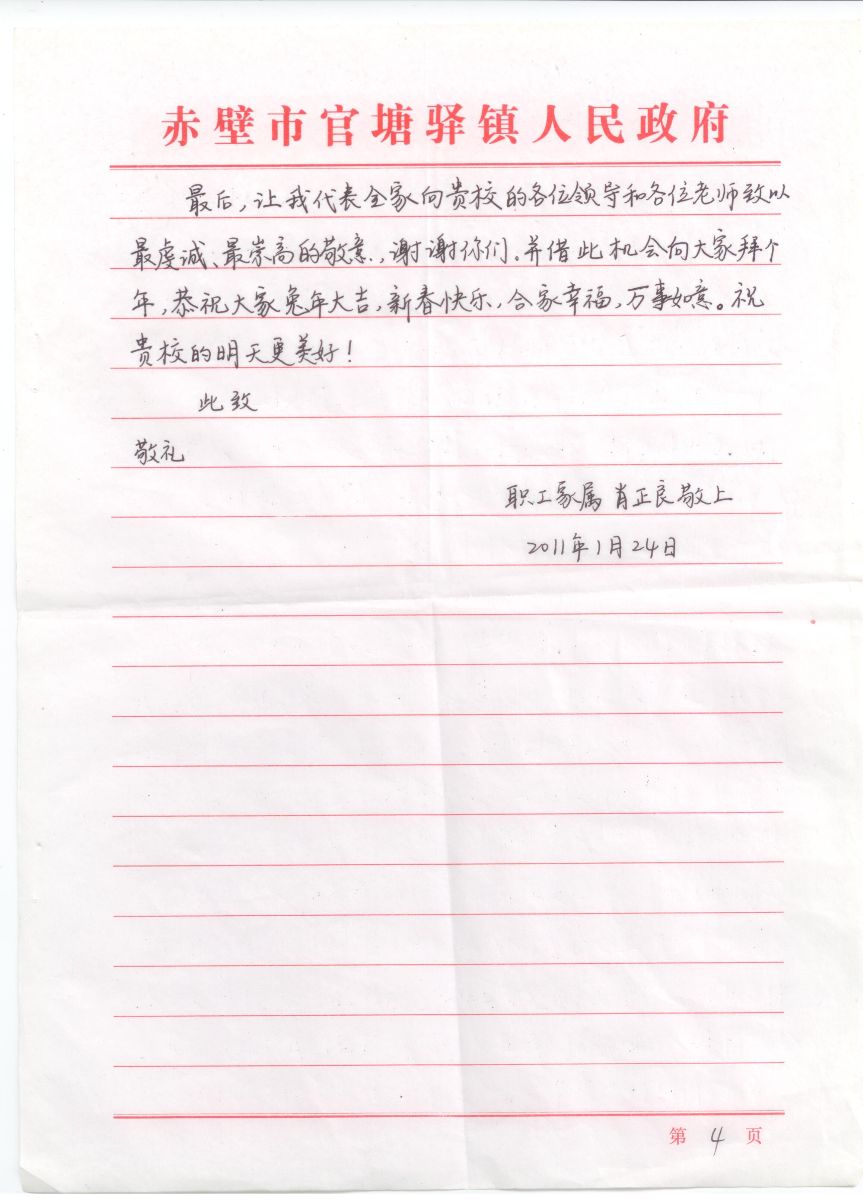 赤壁市官塘驿镇人民政府
最后,让我代表全家向贵校的各位领导和各位老师致以
最虔诚、最崇高的敬意.,谢谢你们。并借此机会向大家拜个
年,恭祝大家兔年大吉,新春快乐,合家幸福,万事如意。祝
贵校的明天更美好!
此致
敬礼
职工家属 肖正良敬上
2011年1月24日
第 4 页